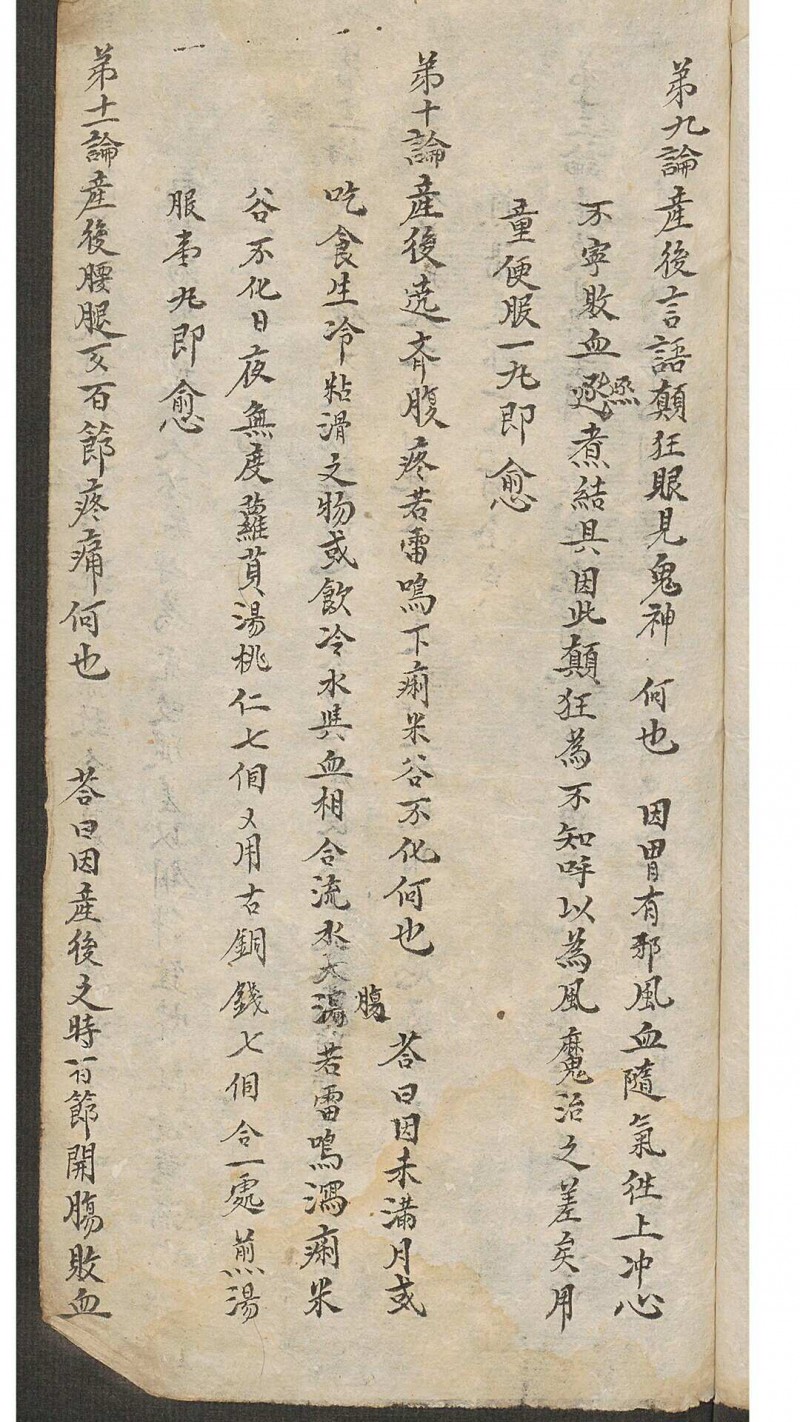 第九論產後言語顛狂眼見鬼神何也 因胃有邪風血隨氣徃上冲心
不寧敗血熬煮結具因此顛狂為不知呼以為風魔治之差矣用
童便服一丸即愈
第十論產後遶斉腹疼若雷鳴下痢米谷不化何也 荅曰因未滿月或
吃食生冷粘滑之物或飲冷水與血相合流水大腸若雷鳴瀉痢米
谷不化日夜無度蘿蔔湯桃仁七個又用古銅錢七個合一處煎湯
服 丸即愈
第十一論產後腰腿又百節疼痛何也 荅曰因產後之時百節開腸敗血